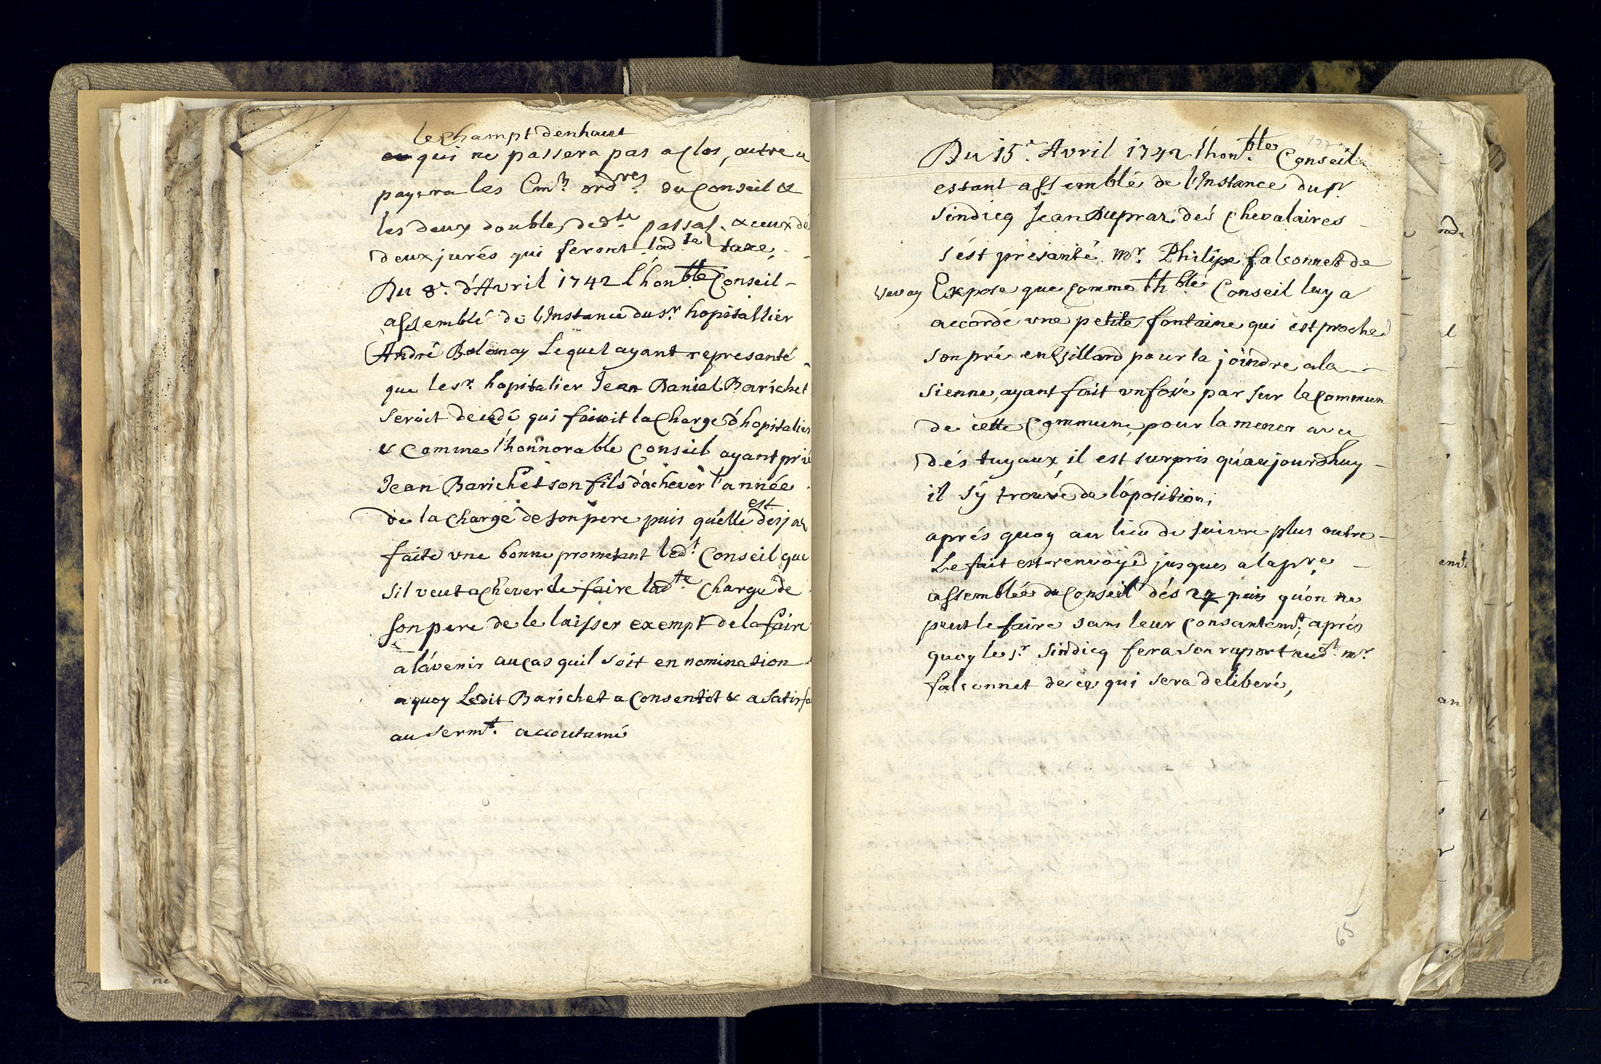 le Champt d'enhaut
qui ne passera pas a Clos, outre ce
payera les Em.ts ord.res du Conseil &
les deux doubles de d.te passa.n & ceux de
deux jurés qui feront lad.te taxe,
Du 8.e d'Avril 1742 l'hon.ble Conseil
assemblé de l'Instance du s.r hopitallier
André Bolomay Lequel ayant representé
que le s.r hopitalier Jean Daniel Barichet
seroit decedé qui faisoit la Charge d'hopitalier
& Comme l'honnorable Conseil ayant prié
Jean Barichet son fils d'achever l'année
de la Charge de son pere puis qu'elle est desja
faite une bonne prometant led.t Conseil que
sil veut achever de faire lad.te Charge de
son pere de le laisser exempt de la faire
a l'avenir au cas quil soit en nomination
a quoy Ledit Barichet a Consentit & a satisfa
au serm.t accoutumé
Du 15.e Avril 1742 l'hon.ble Conseil
estant assemblé de l'Instance du s.r
sindicq Jean Dupraz dés Chevalaires
s'est présanté m.r Philipe falconnet de
Vevay Expose que comme l'h.ble Conseil luy a
accordé une petite fontaine qui est proche
son pré en Gillard pour la joindre a la
sienne, ayant fait un fosé par sur le Commun
de cette Commune, pour la mener avec
dés tuyaux, il est surpris qu'aujourd'huy
il s'y trouve de l'oposition;
aprés quoy au lieu de suivre plus outre
Le fait est renvoyé jusques a la pre.
assemblée du Conseil dés 24 puis qu'on ne
peut le faire sans leur Consantem.t, aprés
quoy le s.r sindicq fera son raport aud.t m.r
falconnet de ce qui sera deliberé,
65